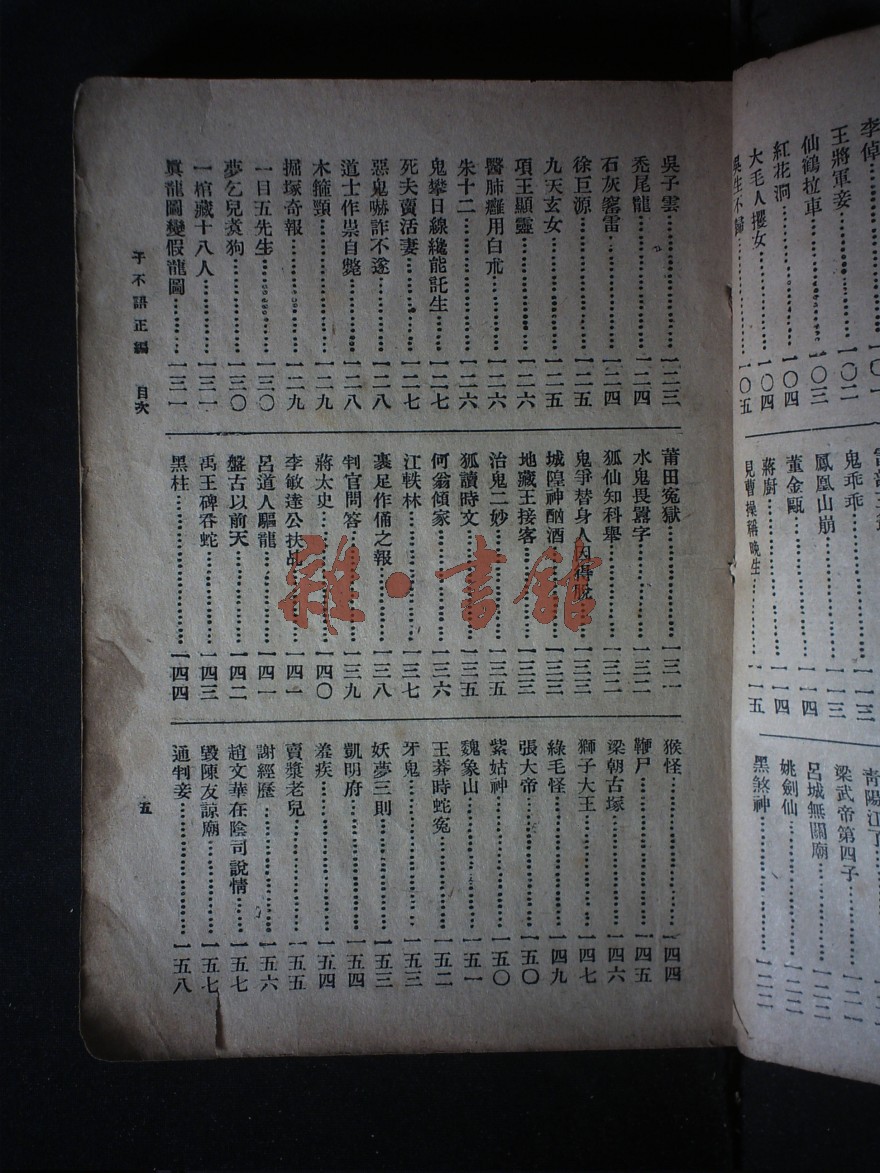 李倬⋯⋯一〇一
王將軍妾⋯⋯一〇二
仙鶴扛車⋯⋯一〇三
紅花洞⋯⋯一〇四
大毛人攫女⋯⋯一〇四
吳生不歸⋯⋯一〇五
鬼乖乖⋯⋯一一三
鳳凰山崩⋯⋯一一三
董金甌⋯⋯一一四
蔣廚⋯⋯一一四
見曹操稱晚生⋯⋯一一五
青陽江丫
梁武帝第四子⋯⋯一二一
呂城無關廟⋯⋯一二二
姚劍仙⋯⋯一二二
黑煞神⋯⋯一二二
吳子雲⋯⋯一二三
禿尾龍⋯⋯一二四
石灰窰雷⋯⋯一二四
徐巨源⋯⋯一二五
九天玄女⋯⋯一二五
項王顯靈⋯⋯一二六
醫肺癰用白朮⋯⋯一二六
朱十二⋯⋯一二六
鬼攀日線纔能託生⋯⋯一二七
死夫賣活妻⋯⋯一二七
惡鬼嚇詐不遂⋯⋯一二八
道士作祟自斃⋯⋯一二八
木箍頸⋯⋯一二九
掘塚奇報⋯⋯一二九
一目五先生⋯⋯一三〇
夢乞兒煑狗⋯⋯一三〇
一棺藏十八人⋯⋯一三一
眞龍圖變假龍圖⋯⋯一三一
莆田寃獄⋯⋯一三一
水鬼畏囂字⋯⋯一三二
狐仙知科舉⋯⋯一三二
鬼爭替身人因得脫⋯⋯一三三
城隍神酗酒⋯⋯一三三
地藏王接客⋯⋯一三三
治鬼二妙⋯⋯一三五
狐讀時文⋯⋯一三五
何翁傾家⋯⋯一三六
江軼林⋯⋯一三七
裹足作俑之報⋯⋯一三八
判官問答⋯⋯一三九
蔣太史⋯⋯一四〇
李敏達公扶乩⋯⋯一四一
呂道人驅龍⋯⋯一四一
盤古以前天⋯⋯一四二
禹王碑吞蛇⋯⋯一四三
黑柱⋯⋯一四四
猴怪⋯⋯一四四
鞭尸⋯⋯一四五
梁朝古塚⋯⋯一四六
獅子大王⋯⋯一四七
綠毛怪⋯⋯一四九
張大帝⋯⋯一五〇
紫姑神⋯⋯一五〇
魏象山⋯⋯一五一
王莽時蛇寃⋯⋯一五二
牙鬼⋯⋯一五三
妖夢三則⋯⋯一五三
凱明府⋯⋯一五四
羞疾⋯⋯一五四
賣漿老兒⋯⋯一五五
謝經歷⋯⋯一五六
趙文華在陰司說情⋯⋯一五七
毀陳友諒廟⋯⋯一五七
通判妾⋯⋯一五八
子不語正編 目次
五
雜·書館